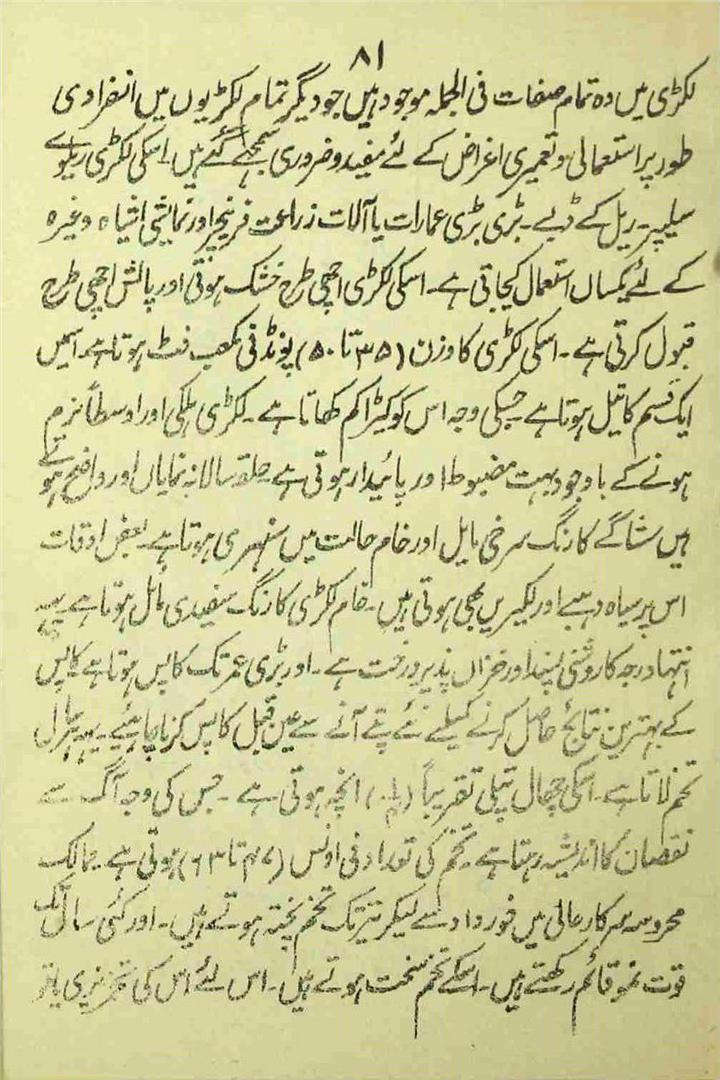 ۸۱
لکڑی میں وہ تمام صفات فی الجملہ موجود ہیں جو دیگر تمام لکڑیوں میں انفرادی
طور پر استعمالی و تعمیری اغراض کے لئے مفید و ضروری سمجھے گئے ہیں۔ اسکی لکڑی ریلوے
سلیپر۔ ریل کے ڈبے۔ بڑی بڑی عمارات یا آلات زراعت فرنیچر اور نمایشی اشیاء وغیرہ
کے لئے یکساں استعمال کیجاتی ہے۔ اسکی لکڑی اچھی طرح خشک ہوتی اور پالش اچھی طرح
قبول کرتی ہے۔ اسکی لکڑی کا وزن (۳۵ تا ۵۰) پونڈ فی مکعب فٹ ہوتا ہے۔ اسمیں
ایک قسم کا تیل ہوتا ہے جسکی وجہ اس کو کیڑا کم کھاتا ہے۔ لکڑی ہلکی اور اوسطاً نرم
ہونے کے باوجود بہت مضبوط اور پائیدار ہوتی ہے حلقہ سالانہ نمایاں اور واضح ہوتے
ہیں ستاگے کا رنگ سرخی مایل اور خام حالت میں سنہری ہوتا ہے۔ بعض اوقات
اس پر سیاہ دہبے اور لکیریں بھی ہوتی ہیں۔ خام لکڑی کا رنگ سفیدی مائل ہوتا ہے۔ یہہ
انتہا درجہ کا روشنی پسند اور خزاں پذیر درخت ہے۔ اور بڑی عمر تک کاپس ہوتا ہے کاپس
کے بہترین نتائج حاصل کرنے کیلئے نئے پتے آنے سے عین قبل کاپس کرنا چاہئیے۔ یہہ ہر سال
تخم لاتا ہے۔ اسکی چھال پتلی تقریباً انچہ ہوتی ہے۔ جس کی وجہ آگ سے
نقصان کا اندیشہ رہتا ہے۔ تخم کی تعداد فی اونس (۴۷ تا ۶۳) ہوتی ہے۔ ممالک
محروسہ سرکار عالی میں خورداد سے لیکر تیر تک تخم پختہ ہوتے ہیں۔ اور کئی سال تک
قوت نمو قائم رکھتے ہیں۔ اسکے تخم سخت ہوتے ہیں۔ اس لئے اس کی تخم ریزی